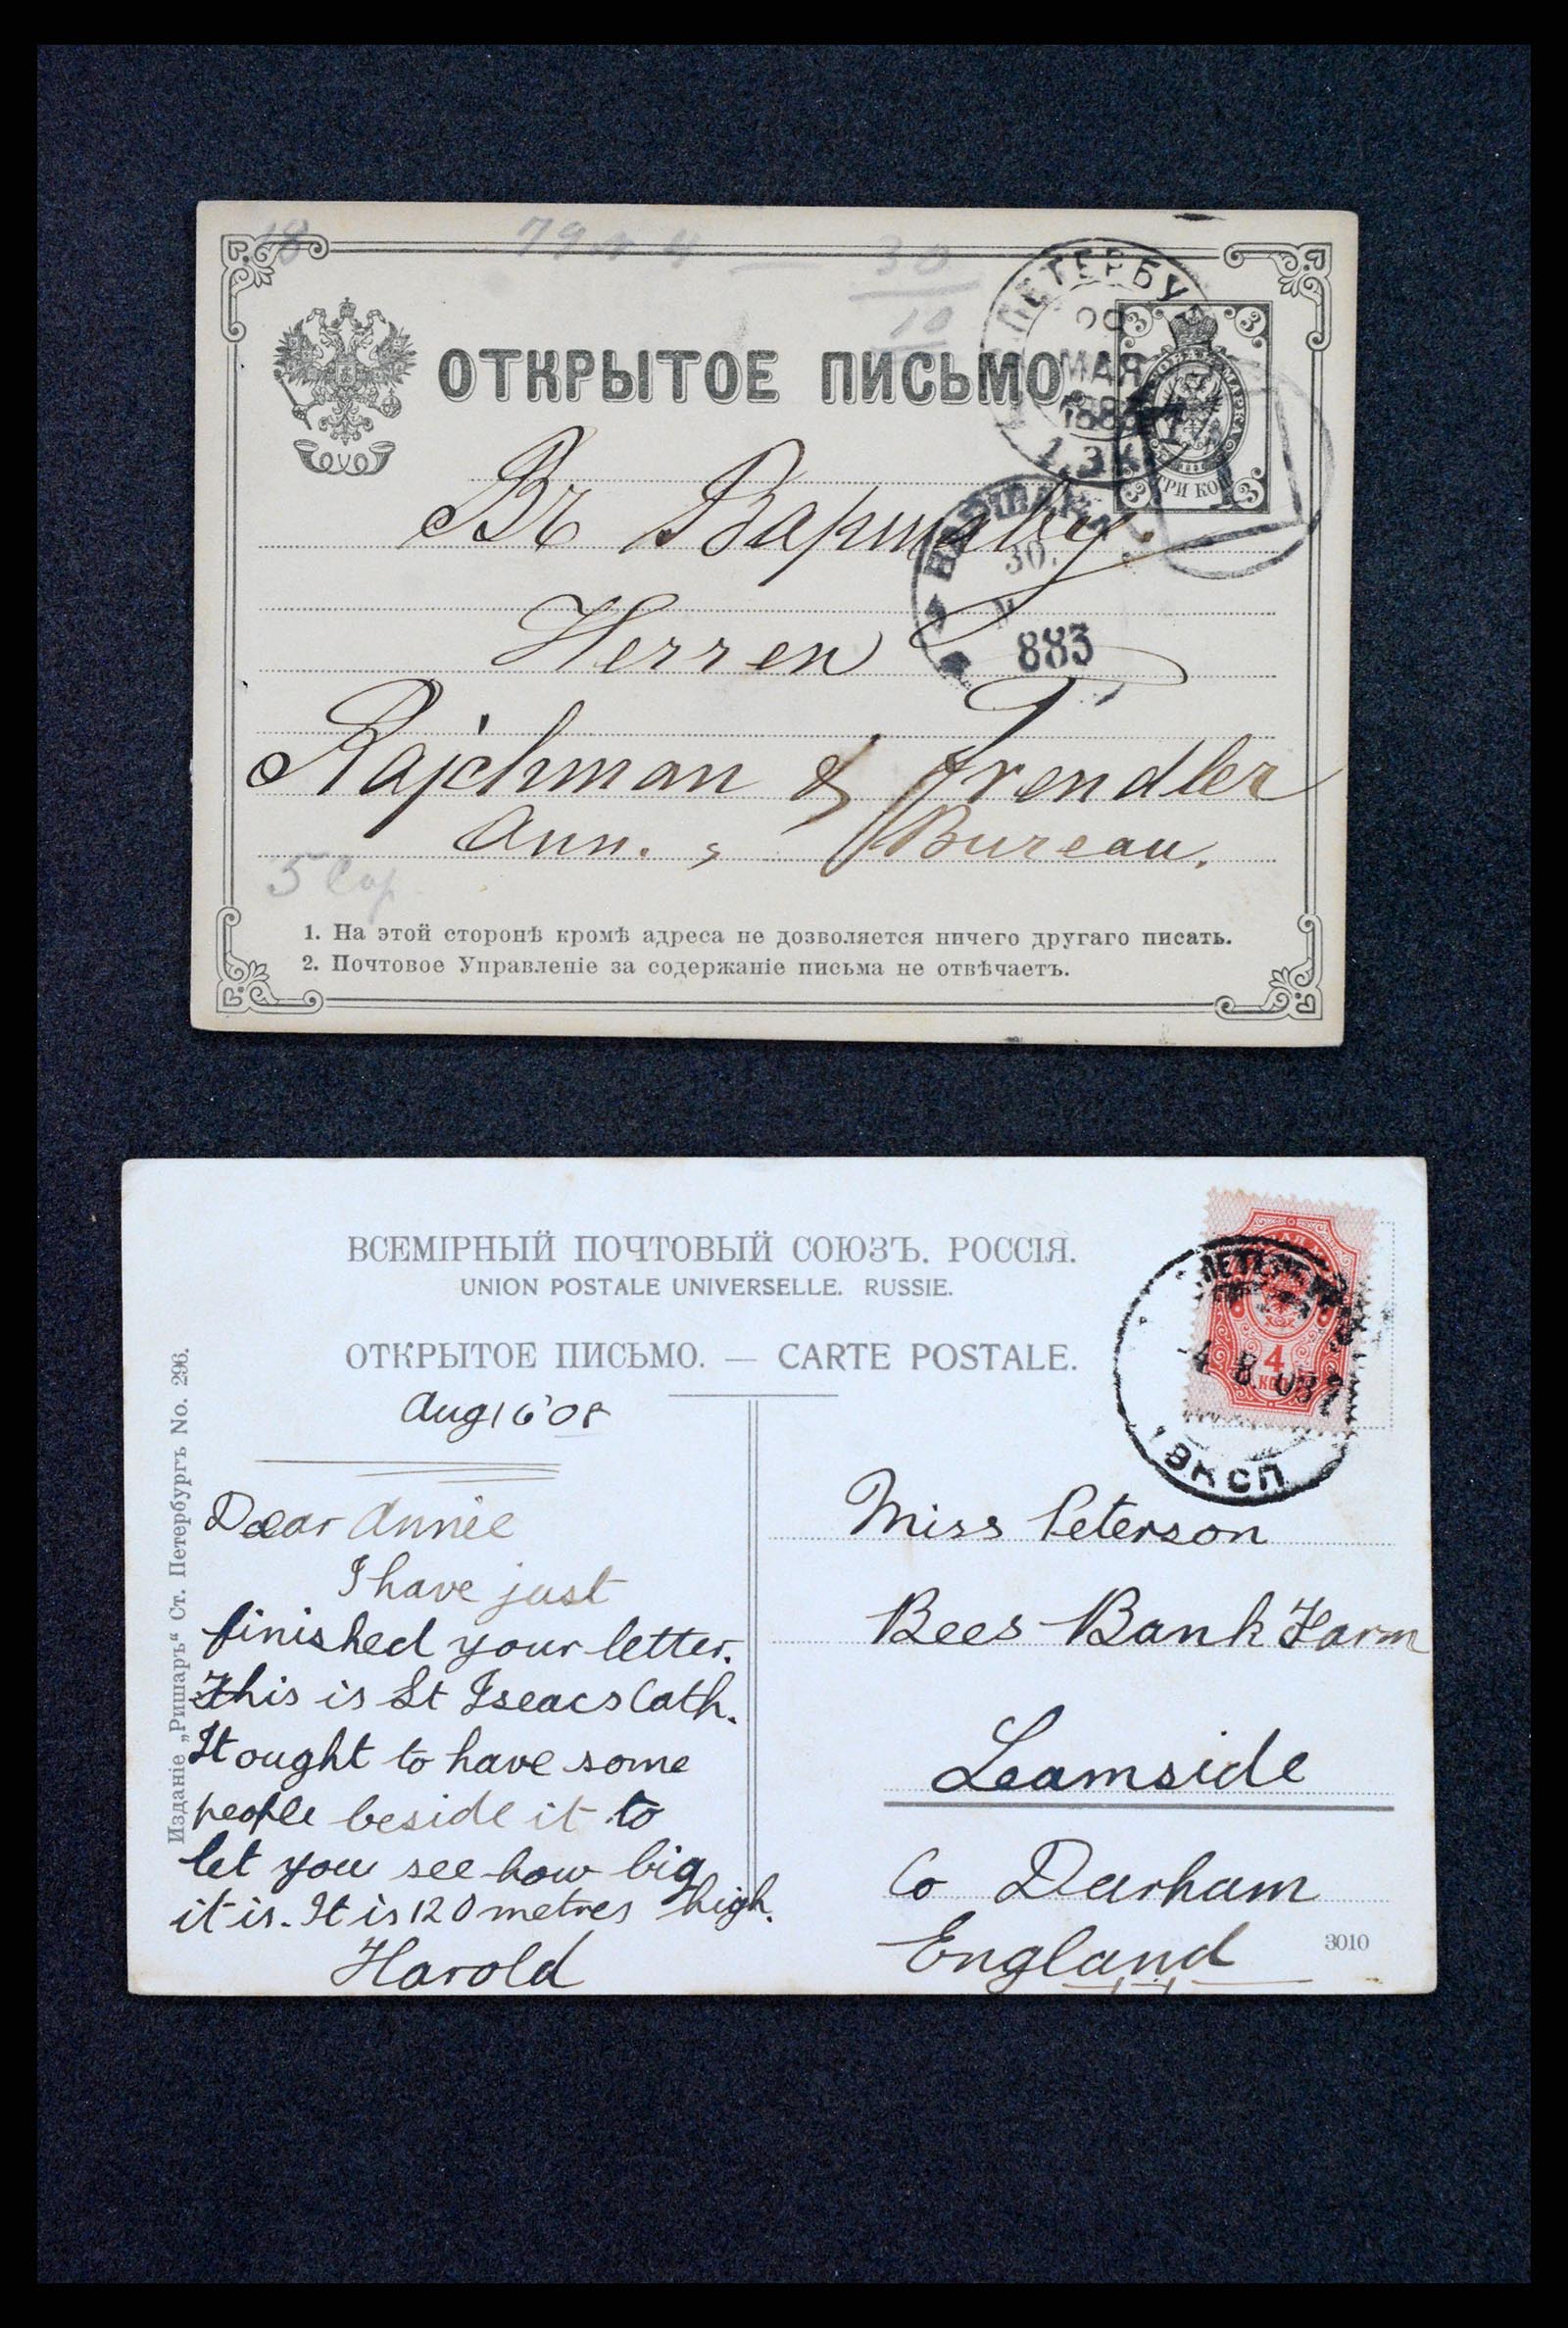 18
30
10
ОТКРЫТОЕ ПИСЬМО
ПЕТЕРБУ
МАЯ
3
3
МАРКА
ТРИ КОП
3
3
1
Въ Варшаву.
30.
V
883
Herren
Rajchman & Frendler
Ann. Bureau.
5 Cop
1. На этой сторонѣ кромѣ адреса не дозволяется ничего другаго писать.
2. Почтовое Управленіе за содержаніе письма не отвѣчаетъ.
ВСЕМІРНЫЙ ПОЧТОВЫЙ СОЮЗЪ. РОССІЯ.
UNION POSTALE UNIVERSELLE. RUSSIE.
ОТКРЫТОЕ ПИСЬМО. — CARTE POSTALE.
Изданіе „Ришаръ“ Ст. Петербургъ No. 296.
Aug 16 '08
Dear Annie
I have just
finished your letter.
This is St Iseacs Cath.
It ought to have some
people beside it to
let you see how big
it is. It is 120 metres high.
Harold
4
-4. 8. 08
ЭКСП
Miss Peterson
Bees Bank Farm
Leamside
Co Durham
England
3010